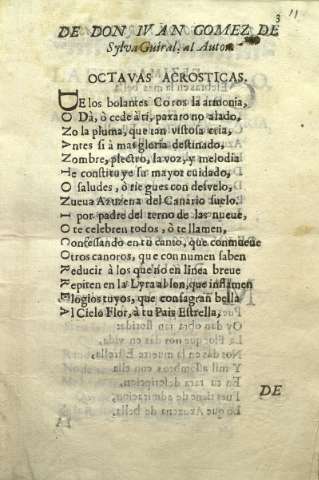 11
3
DE DON IVAN GOMEZ DE
Sylva Guiral, al Autor.
OCTAVAS ACROSTICAS.
DE los bolantes Coros la armonia,
O Dà, ò cede à ti, paxaro no alado,
No la pluma, que tan vistosa cria,
Antes si à mas gloria destinado,
Nombre, plectro, la voz, y melodia
Te constituye su mayor cuidado,
O saludes, ò riegues con desvelo,
Nueua Azuzena del Canario suelo.
I por padre del terno de las nueuè,
O te celebren todos, ò te llamen,
Confessando en tu canto, que conmueue
Otros canoros, que con numen saben
Reducir à los que no en linea breue
Repiten en la Lyra al son, que inflamen
Elogios tuyos, que consagran bella
Al Cielo Flor, à tu Pais Estrella,
DE